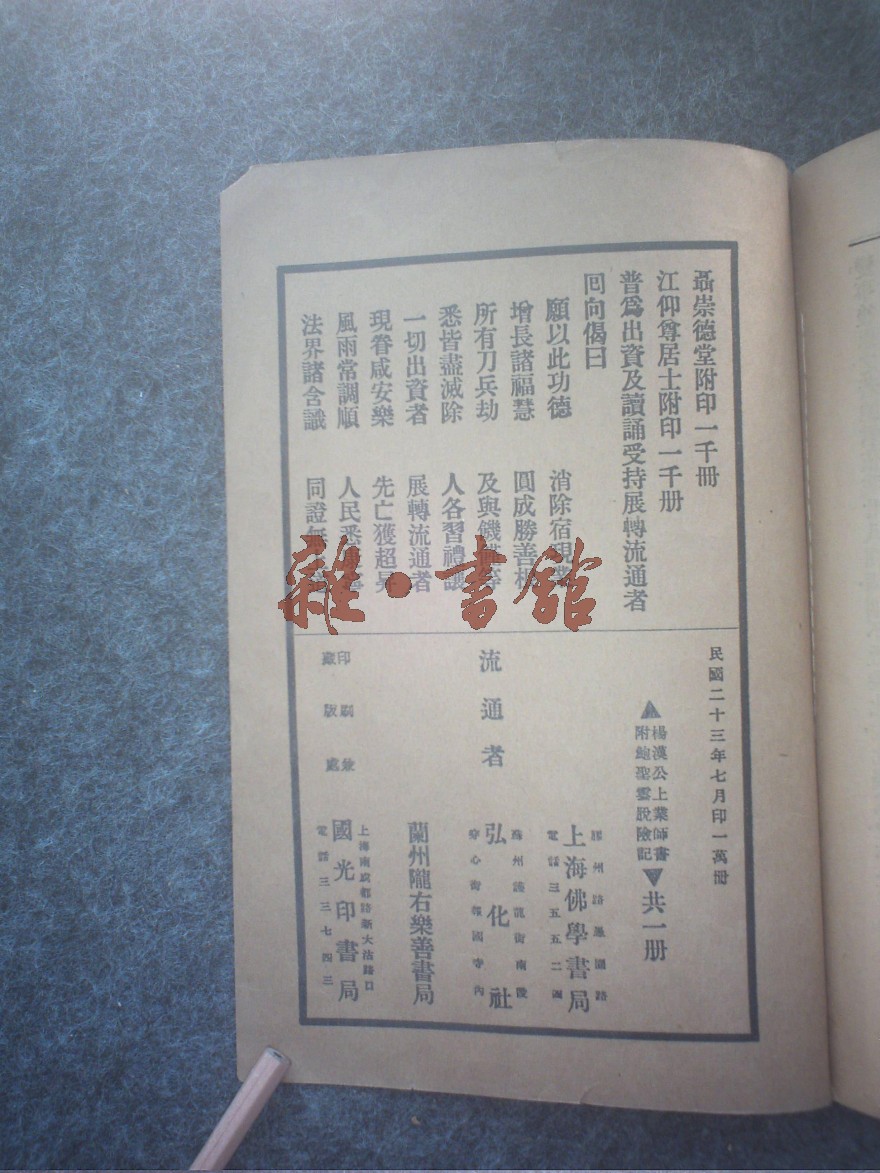 聶崇德堂附印一千冊
江仰尊居士附印一千册
普爲出資及讀誦受持展轉流通者
回向偈曰
願以此功德 消除宿現業
增長諸福慧 圓成勝善根
所有刀兵劫 及與饑饉等
悉皆盡滅除 人各習禮讓
一切出資者 展轉流通者
現眷咸安樂 先亡獲超昇
風雨常調順 人民悉
法界諸含識 同證無
民國二十三年七月印一萬冊
楊漢公上業師書
附鮑聖雲脫險記
共一册
流通者
膠州路 園路
上海佛學書局
電話三五五二
蘇州護龍街南段
弘化社
穿心街報國寺內
蘭州隴右樂善書局
印刷兼
藏版處
上海南成都路新大沽路口
國光印書局
電話三三七四三
雜·書館